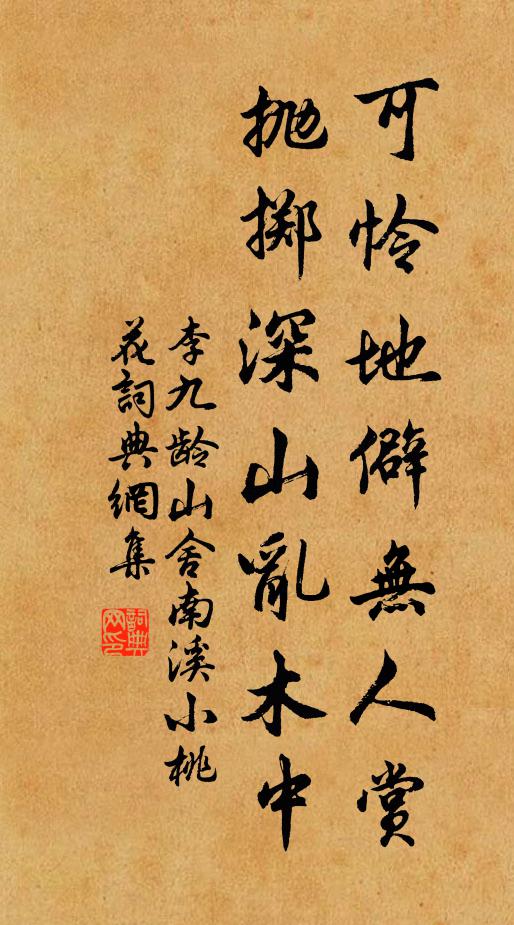 可怜地僻無人賞
抛擲深山亂木中
李九龄山舍南溪小桃
花詞典網集
詞典
网印